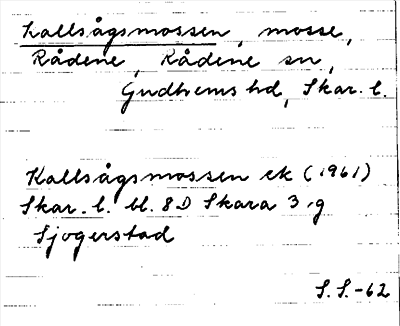 Kallsågsmossen, mosse,
Rådene, Rådene sn,
Gudhems hd, Skar. l.
Kallsågsmossen ek (1961)
Skar. l. bl. 8D Skara 3 g
Sjogerstad
S.S.-62